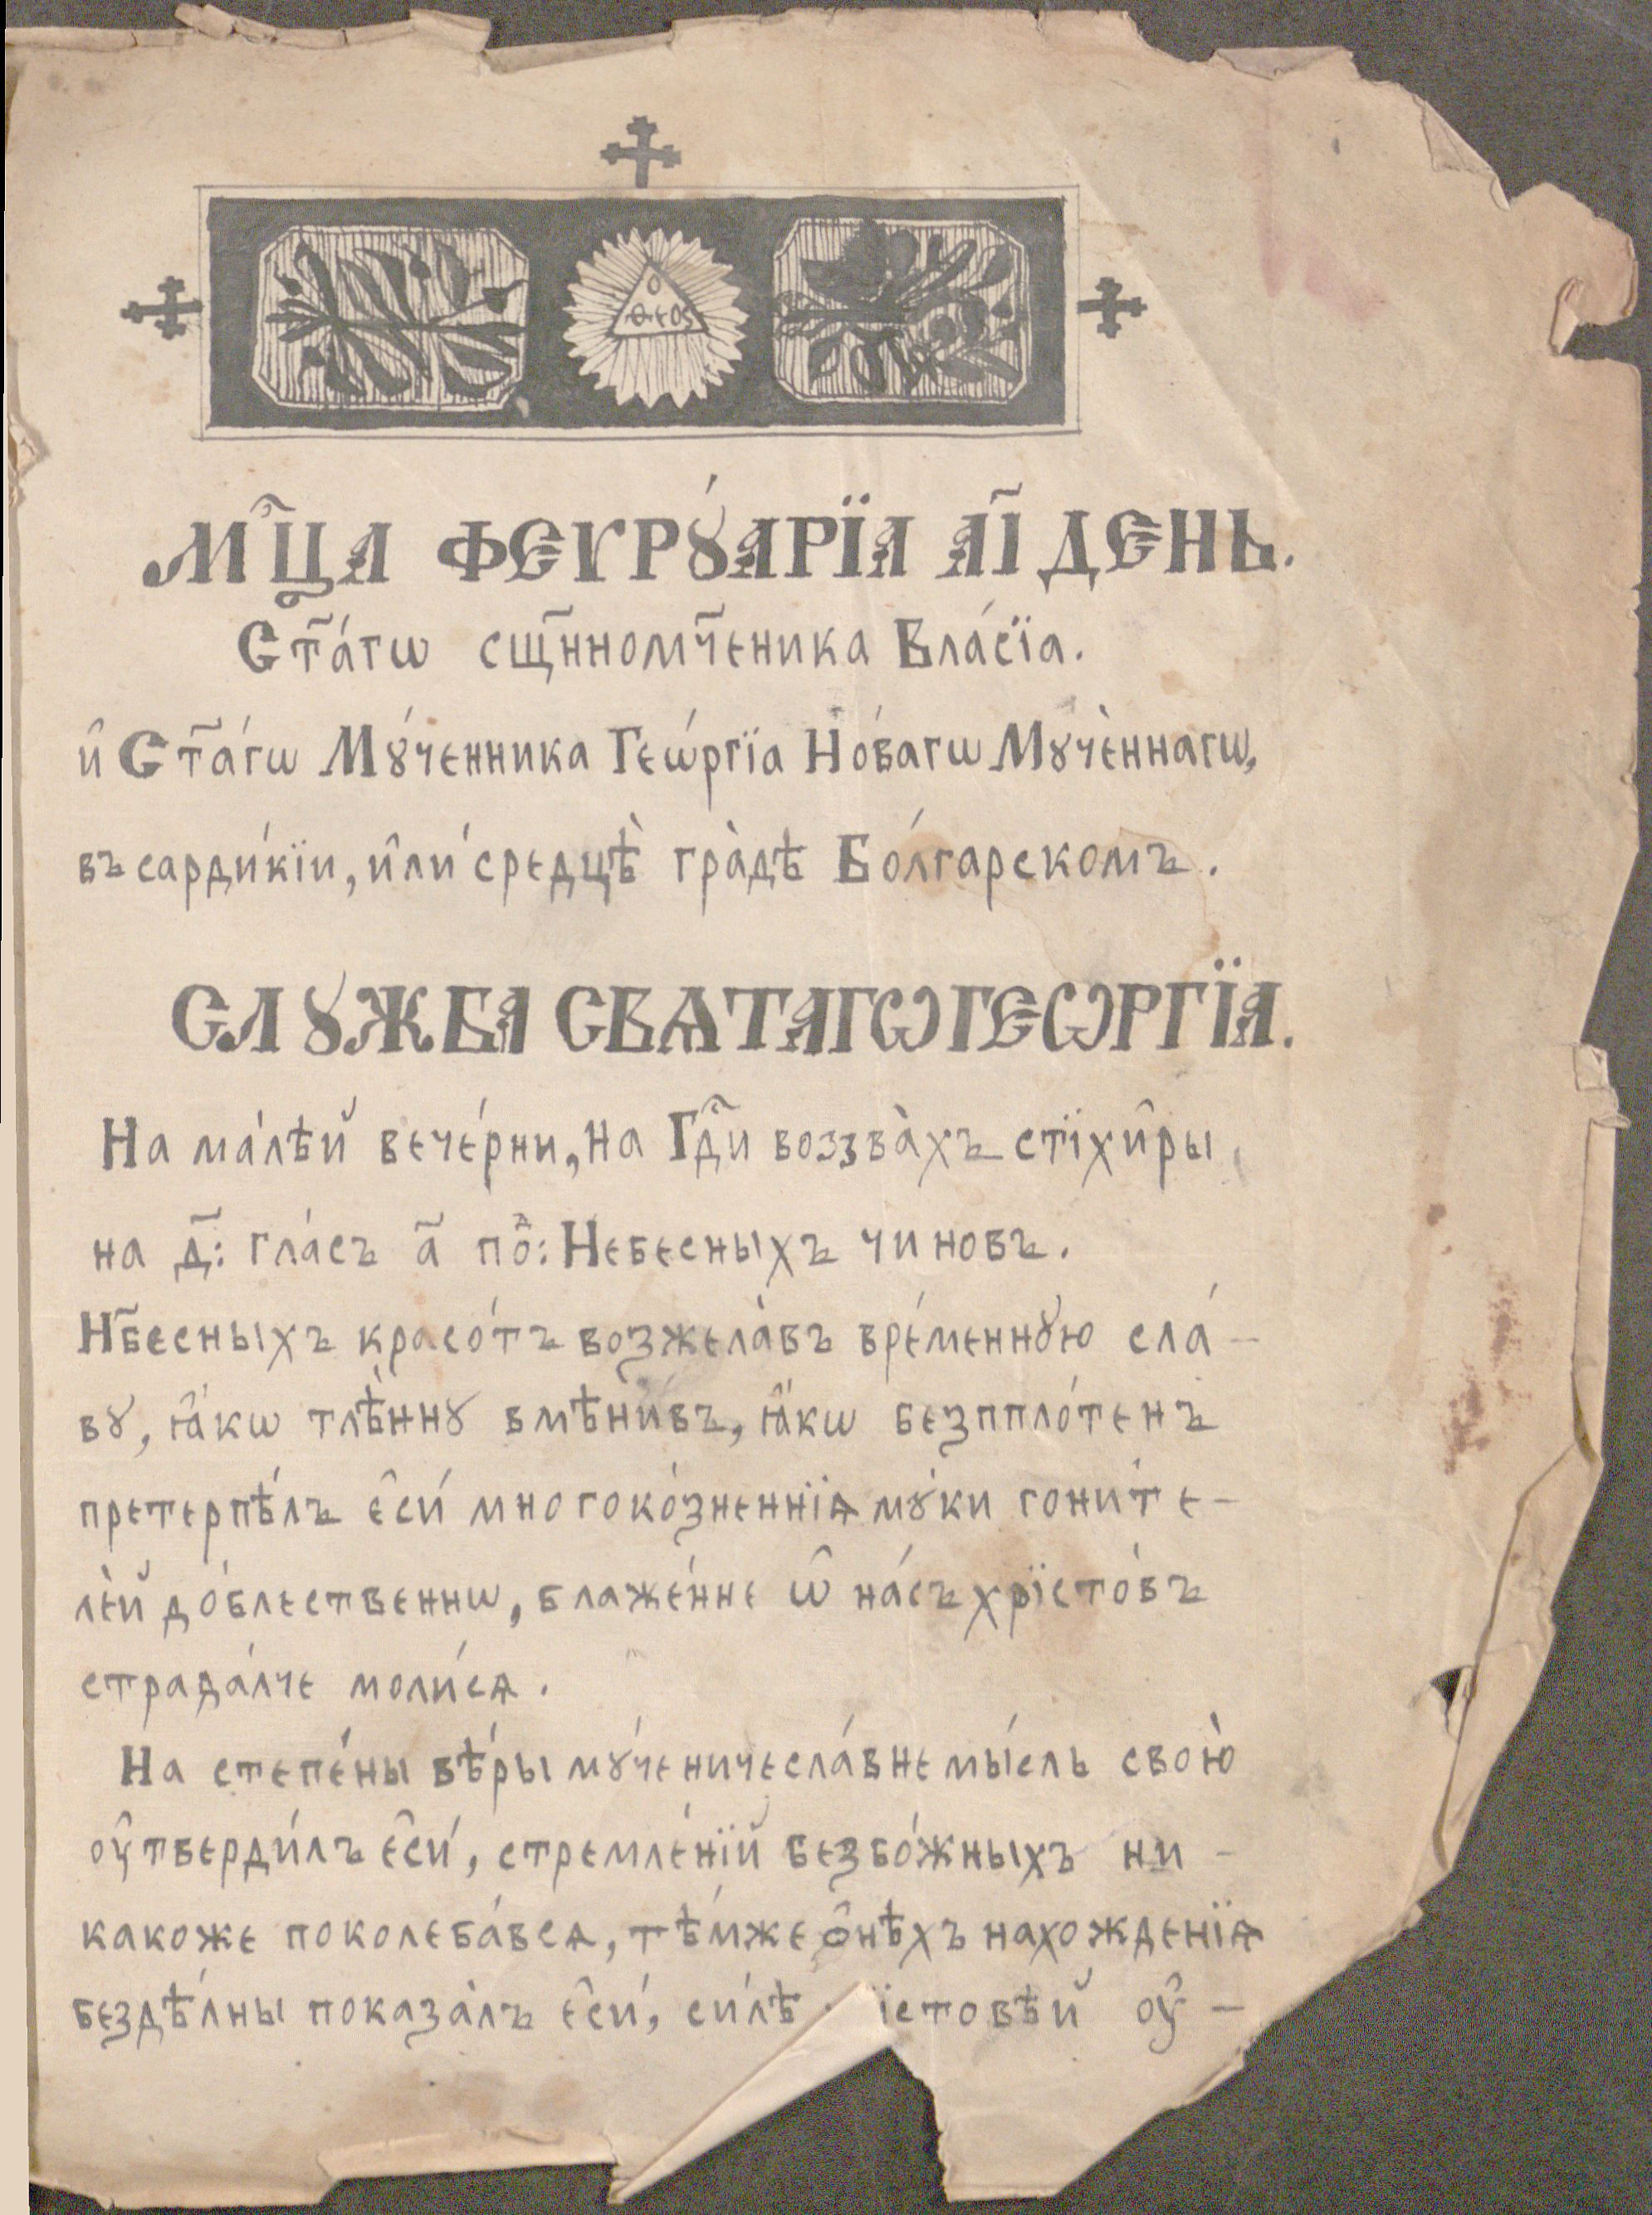 ὁ
Θεος
Мц҃а феврꙋ́арїа а҃і день.
Ст҃а́гѡ сщ҃нномч҃еника Вла́сїа.
и҆ Ст҃а́гѡ Мꙋ́ченника Геѡ́ргїа Но́вагѡ Мꙋчѐннагѡ,
въ сарди́кїи, и҆лѝ средцѣ̀ гра̀дѣ Бо́лгарскомъ.
Слꙋжба Свѧтагѡ Геѡргїа.
На ма́лѣй вече́рни, на Гд҃и воззва̀хъ стїхи̑ры,
на д҃: гла́съ а҃ по̑: Небесныхъ чиновъ.
Нб҃есныхъ красо́тъ возжела̀въ вре́меннꙋю сла́-
вꙋ, ꙗ҆́кѡ тлѣ́ннꙋ вмѣни́въ, ꙗ҆́кѡ безппло́тенъ
претерпѣ́лъ є҆сѝ многоко́зненнїѧ мꙋ́ки гони́те-
ле́й до́блественнѡ, блаже́нне ѡ҆ на́съ хрїсто́въ
страда́лче моли́сѧ.
На степе́ны вѣ́ры мꙋ́ченичесла́вне мы́сль свою̀
оу҆тверди́лъ є҆сѝ, стремле́нїй безбо́жныхъ ни-
какоже поколеба́всѧ, тѣ́мже ѻ҆нѣ́хъ нахожденїѧ
бездѣ́лны показа́лъ є҆сѝ, си́лѣ їстовѣй оу҆-